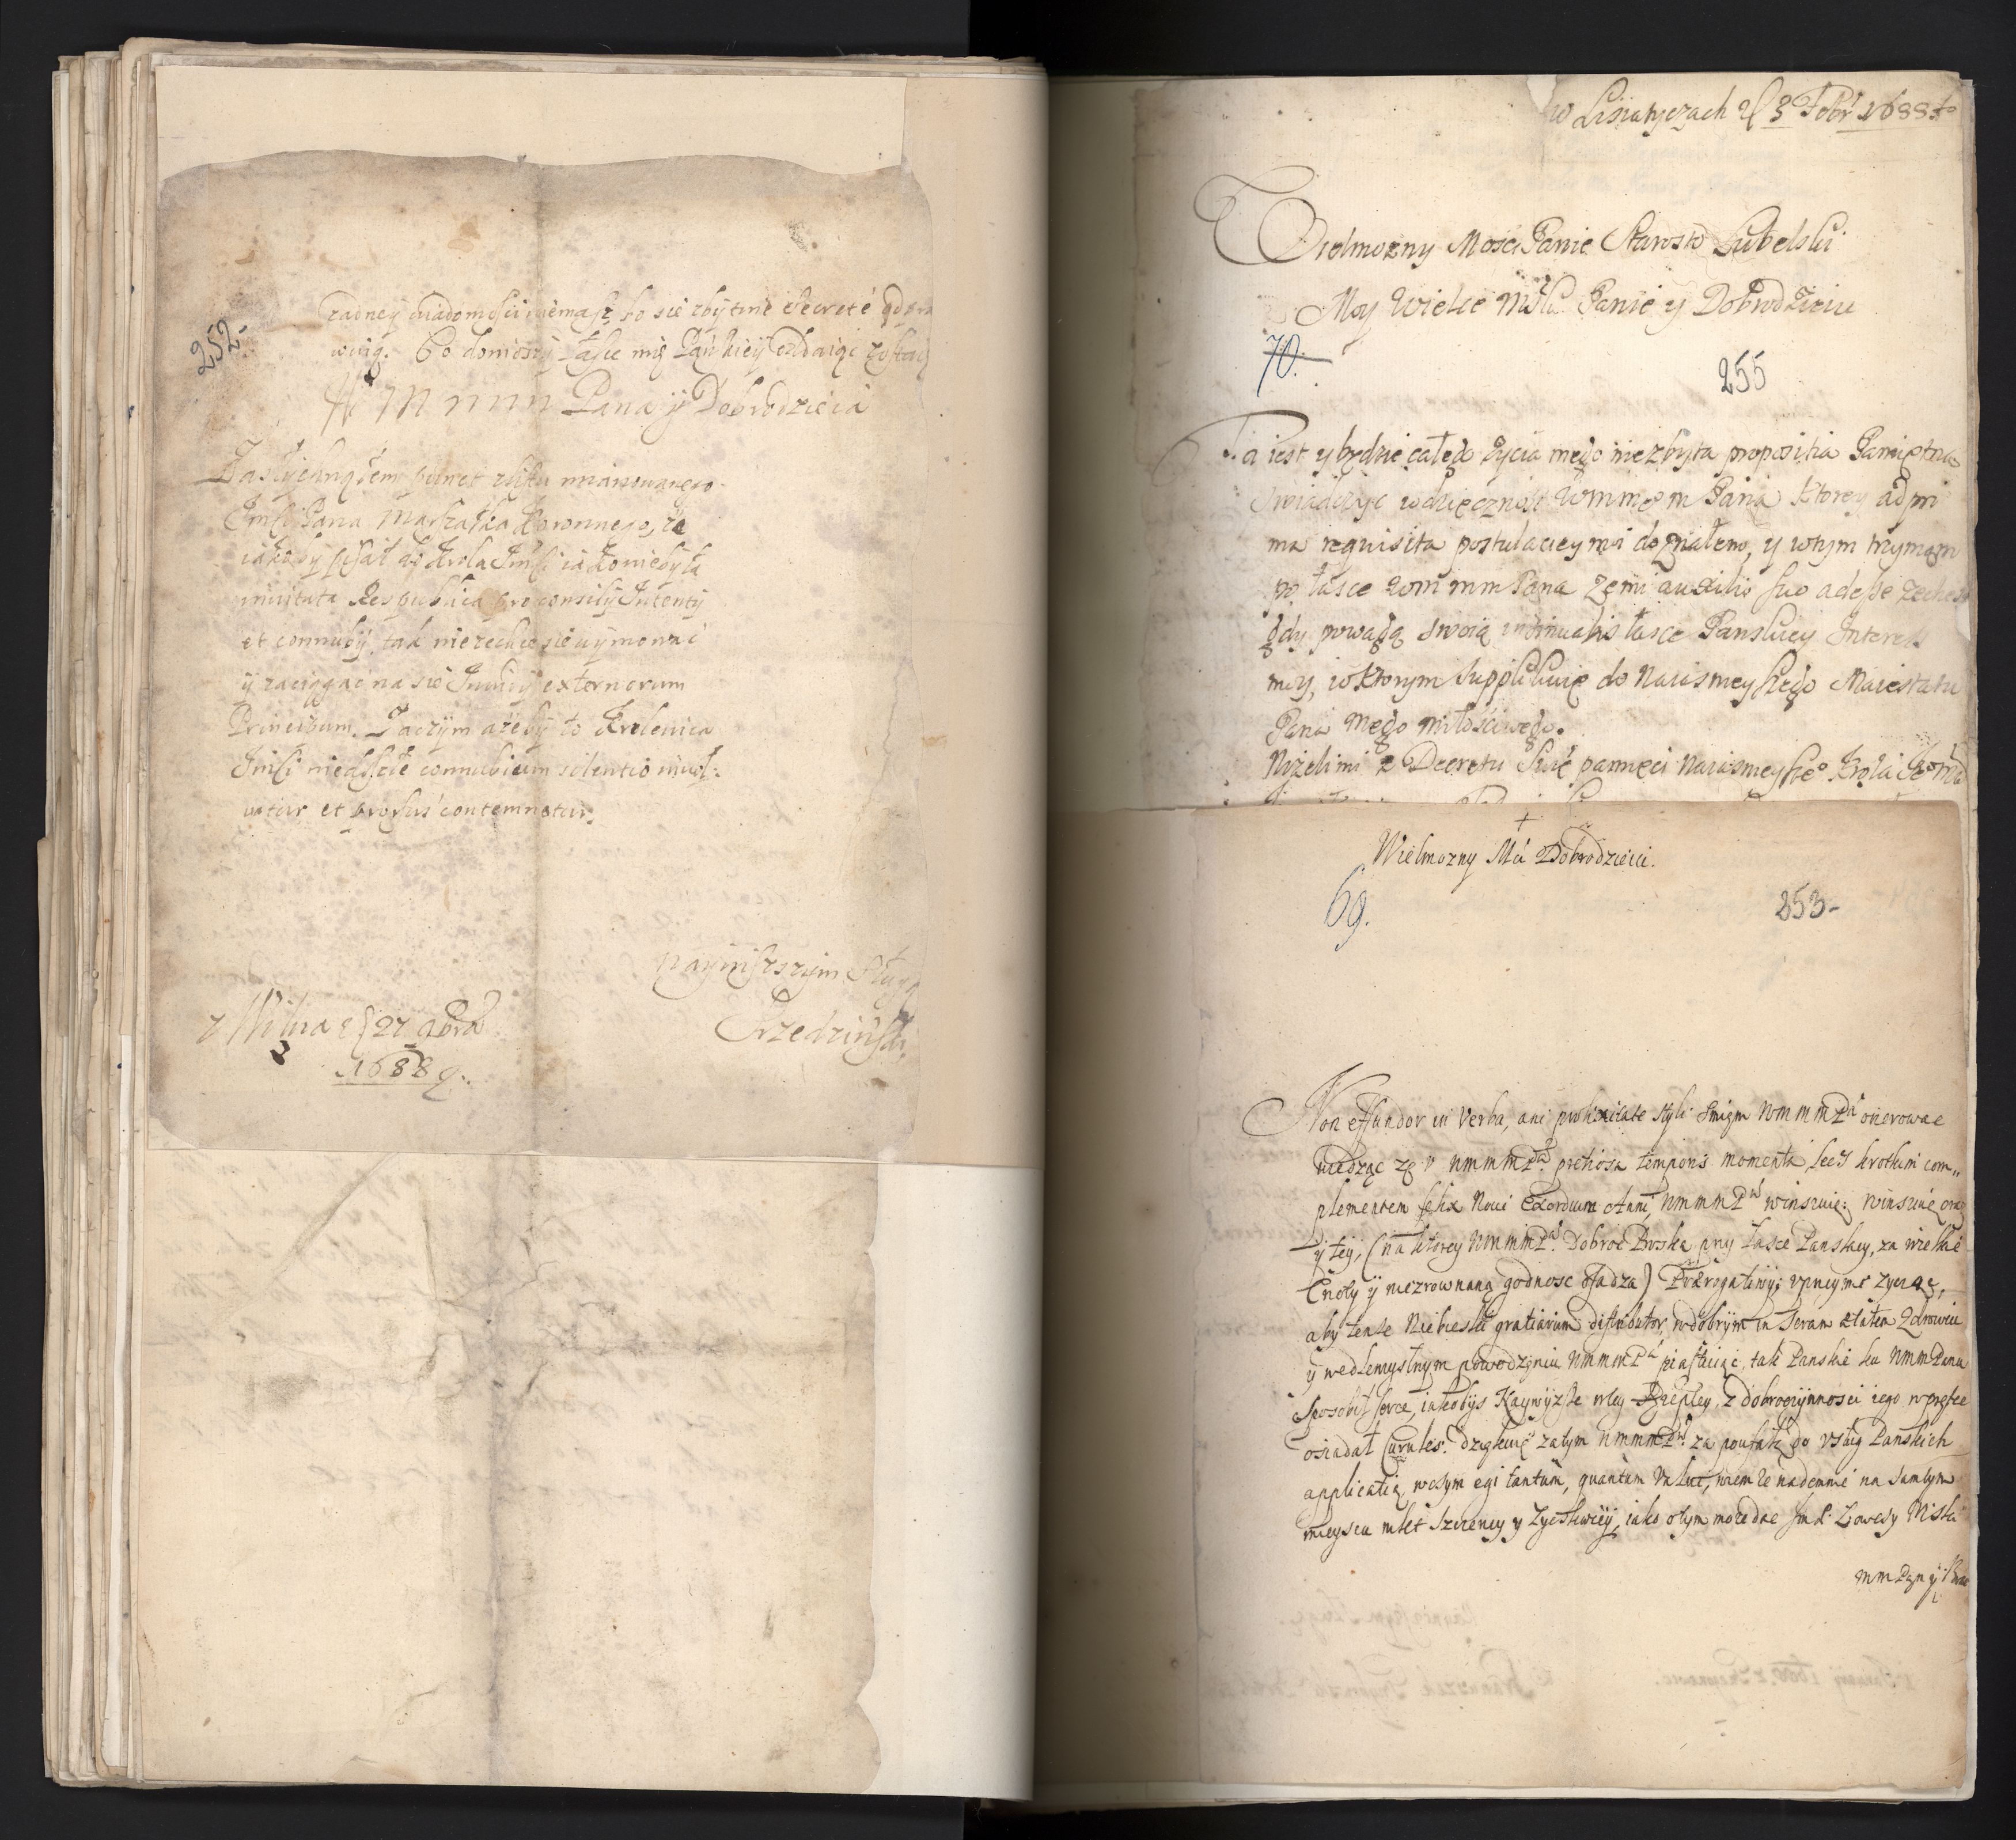 252.
zadney wiadomosci niemasz, bo sie zbytnie secreté
wuią. Co doniosszy łasce mię Pańskiey oddaiąc
W M M M M Pana y Dobrodzieia
Zasiągnąłem punct z listu mianowanego
Jmści Pana Marszałka Koronnego, że
iakoby pisał do Krola Jmści iako niebyła
invitata Respublica pro consilÿ Intentÿ
et connubÿ, tak niezechce sie uymować
y zaciągać na sie Iniurÿ externorum
Principum. Zaczym ażeby to Krolewica
Jmści connubium silentio
et prorsus contemnatur.
nayniższym Sługą
z Wilna 27 9bra
1688
w Lisiatyczach 3 Febr 1688
Wielmozny Mości Panie Starosto Lubelski
Moy Wielce Mści Panie y Dobrodzieiu
70.
255
Ta iest y będzie całego życia mego niezbyta propositia Pamiętną
swiadczyc wdzięcznosc WMMM Pana, ktorey ad pri
ma requisita postulaciey moi doznałem, y wtym trzymam
po łasce WM MM Pana że mi auxilio suo adesse zechce
gdy powagą swoią insinuabis łasce Panskiey Interess
moy, w ktorym supplikuię do Naiasnieyszego Maiestatu
Pana mego miłościwego.
Niżeli mi z Decretu pamięci Naiasnieyszeo Krola
Wielmozny Mći Dobrodzieiu.
69.
253-
Non effundor in verba, ani prolixitate styli smiem WMMMPa onerowac
wiedząc że u WMMMPa pretiosa temporis momenta, lecz krotkim com„
plementem felix Novi Exordium Anni, WMMMPu winszuię: winszuię oraz
y tey, (na ktorey WMMMPa Dobroc Boska przy łasce Panskiey, za wielkie
Cnoty y niezrownaną godnosc osadza) Prærogatiwy; uprzeymie życząc,
aby tenże Niebieski gratiarum distributor, w dobrym in seram ætatem zdrowiu
y wedłemyslnym powodzeniu WMMMPa piastuiąc, tak Panskie ku WMMPanu
sposobił serce, iakobys Naywyższe w tey Rzeptey, z dobroczynnosci iego w prętce
osiadał Curules. Dziękuię zatym WMMMPu za poufałą do usług Panskich
applicatią, w czym egi tantum, quantum valui, wiem że nademnie na samtym
mieyscu miec szczerzey y życzliwiey, iako o tym może dac JmP. Łowczy